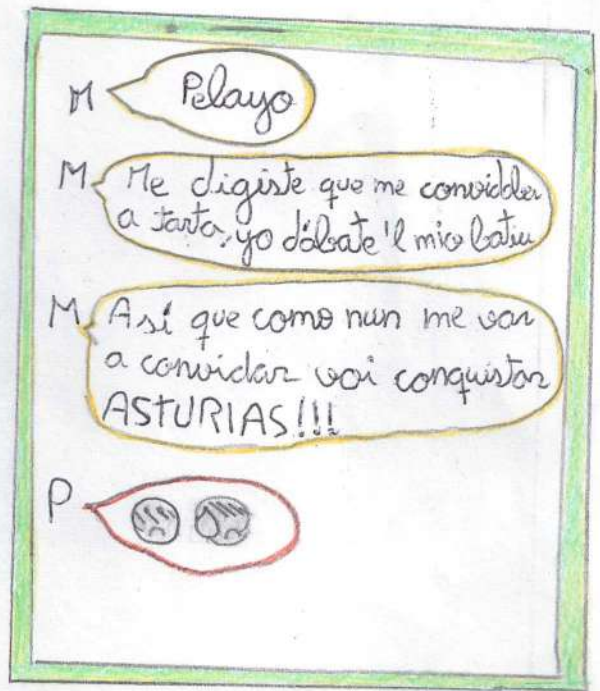 M Pelayo
M Me digiste que me convidabes
a tarta, yo dábate'l mio batiu
M Así que como nun me vas
a convidar voi conquistar
ASTURIAS!!!
P